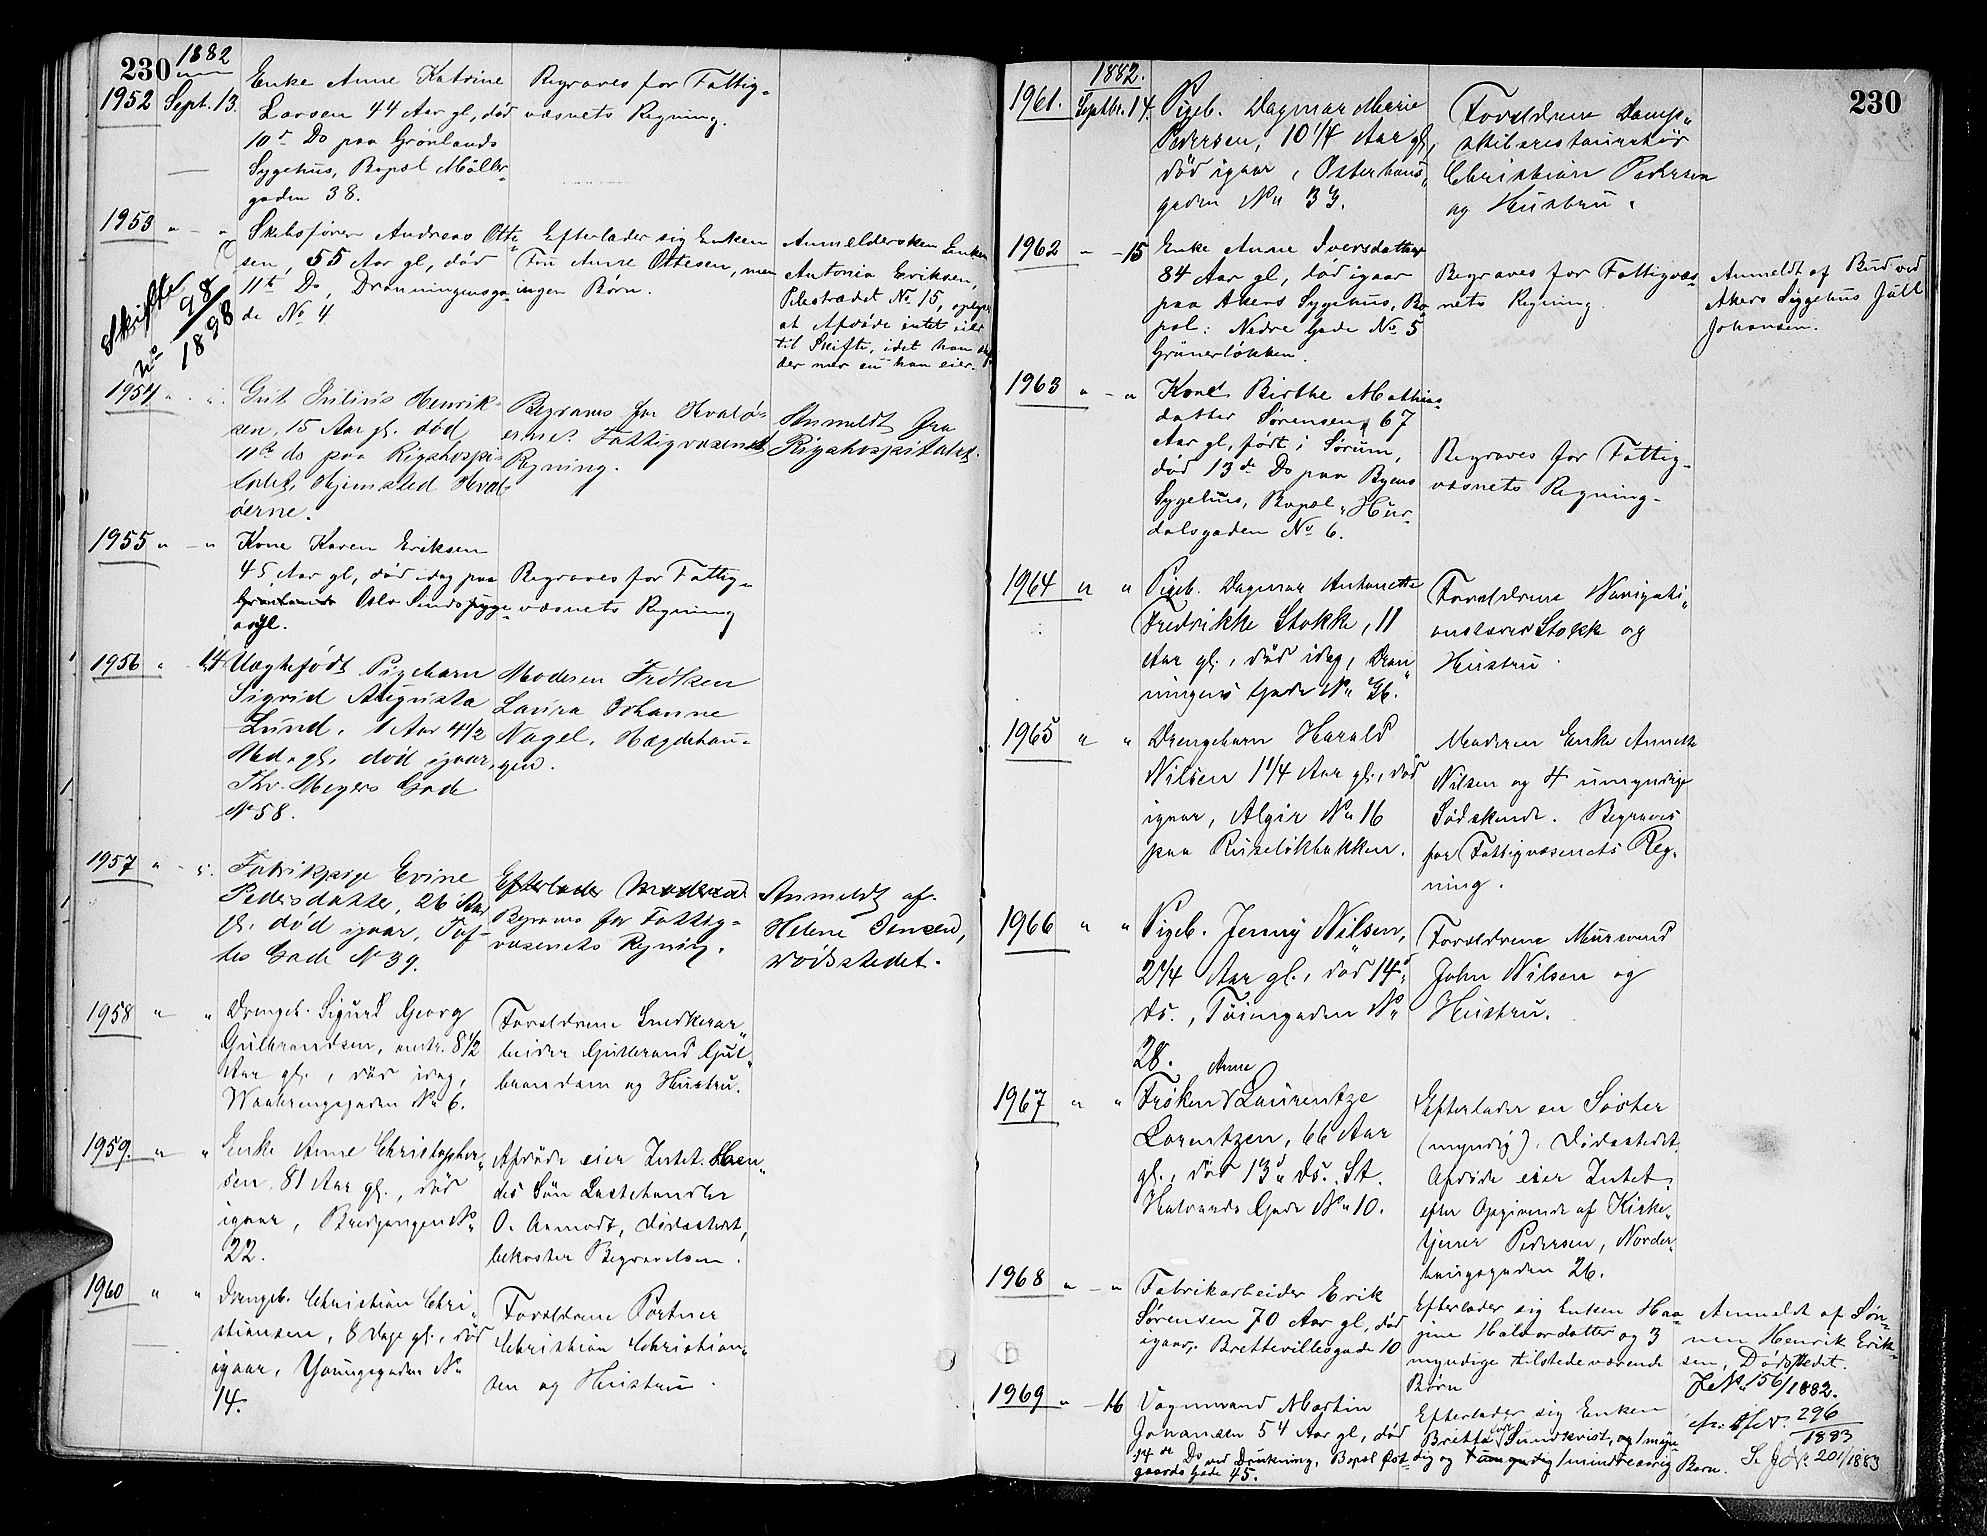 230 1882
1952 Sept. 13. Enke Anne Katrine
Larsen 44 Aar gl, död
10de Do paa Grønlands
Sygehus, Bopæl Möller-
gaden 38.
Begraves for Fattig-
væsnets Regning.
1953 " - " Skibsfører Andreas Otte
sen, 55 Aar gl, död
11te Do, Dronningensga-
de No 4.
Skifte
No 98/1898
Efterlader sig Enken
Fru Anne Ottesen, men
ingen Børn.
Anmeldersken Enken
Antonia Eriksen,
Pilestrædet No 15, opgiver
at Afdöde intet eier
til Skifte, idet han
der mer en han eier.
1954 " - " Gut Julius Henrik-
sen, 15 Aar gl. død
11te do paa Rigshospi-
talet, Hjemsted Hval-
öerne.
Begraves for Hvalø-
ernes Fattigvæsenets
Regning.
Anmeldt fra
Rigshospitalet.
1955 " - " Kone Karen Eriksen
45 Aar gl, död idag paa
Grønlands Oslo Sindssyge
asyl.
Begraves for Fattig-
væsnets Regning
1956 " - 14 Uægtefødt Pigebarn
Sigrid Augusta
Lund, 1 Aar 4 1/2
Md. gl. død igaar,
Thv. Meyers Gade
No 58.
Moderen Frøken
Laura Johanne
Nagel, Hægdehau-
gen.
1957 " - ". Fabrikpige Evine
Pedersdatter, 26 Aar
gl. død igaar, Tof-
tes Gade No 39.
Efterlader Moderen
Begraves for Fattig-
væsenets Regning.
Anmeldt af
Helene Jensen,
Dødsstedet.
1958 " " Drengeb. Sigurd Georg
Gulbrandsen, omtr. 8 1/2
Aar gl., död idag,
Waalerengsgaden No 6.
Forældrene Snedkerar-
beider Gulbrand Gul-
brandsen og Hustru.
1959. " " Enke Anne Christopher-
sen, 81 Aar gl., död
igaar, Bredgangen No
22.
Afdöde eier Intet. Hen-
des Sön Lastehandler
O. Aamodt, Dödsstedet,
bekoster Begravelsen.
1960 " " Drengeb. Christian Chri-
stiansen, 8 Dage gl., död
igaar, Youngsgaden No
14.
Forældrene Portner
Christian Christian-
sen og Hustru.
1882. 230
1961. Septbr. 14. Pigeb. Dagmar Marie
Pedersen, 10 1/4 Aar gl,
död igaar, Osterhaus-
gaden No 33.
Forældrene Damp-
skibsrestauratör
Christian Pedersen
og Hustru.
1962 " - 15 Enke Anne Iversdatter
84 Aar gl, död igaar
paa Akers Sygehus, Bo
pæl: Nedre Gade No 5
Grünerløkken.
Begraves for Fattigvæs-
nets Regning
Anmeldt af Bud ved
Akers Sygehus Jull
Johansen.
1963 " - " Kone Birthe Mathias-
datter Sørensen, 67
Aar gl, født i Sørum,
död 13de Do paa Byens
Sygehus, Bopæl: Hur-
dalsgaden No 6.
Begraves for Fattig-
væsnets Regning-
1964 " " Pigeb. Dagmar Antonette
Fredrikke Stokke, 11
Aar gl., död idag, Dron
ningens Gade No 36.
Forældrene Navigati-
onslærer Stokk og
Hustru.
1965 " " Drengebarn Harald
Nilsen 1 1/4 Aar gl., död
igaar, Algir No 16
paa Ruseløkbakken.
Moderen Enke Annette
Nilsen og 4 umyndige
Södskende. Begraves
for Fattigvæsenets Reg-
ning.
1966 " " Pigeb. Jenny Nilsen,
2 1/4 Aar gl., död 14de
ds., Töiengaden No
28.
Forældrene Mursvend
John Nilsen og
Hustru.
1967 " " Anne
Fröken Laurentze
Lorentzen, 66 Aar
gl., död 13de ds. St.
Halvards Gade No 10.
Efterlader en Söster
(myndig), Dödsstedet,
Afdöde eier Intet,
efter Opgivende af Kirke-
tjener Pedersen, Norder-
haugsgaden 26.
1968 " - " Fabrikarbeider Erik
Sørensen 70 Aar gl, död
igaar, Brettevillesgade 10
Efterlader sig Enken Haa
gine Halvordatter og 3
myndige tilstedeværende
Børn
Anmeldt af Søn-
nen Henrik Erik-
sen, Dødsstedet.
1969 " - 16 Vognmand Martin
Johansen 54 Aar gl, död
14de Do ved Drukning, Bopæl Øst-
gaards Gade 45.
Efterlader sig Enken
Britta Sundkvist, og 1 myn
dig og 1 umyndig 1 mindreaarig Barn.
No 156/1882.
296/1883
201/1883